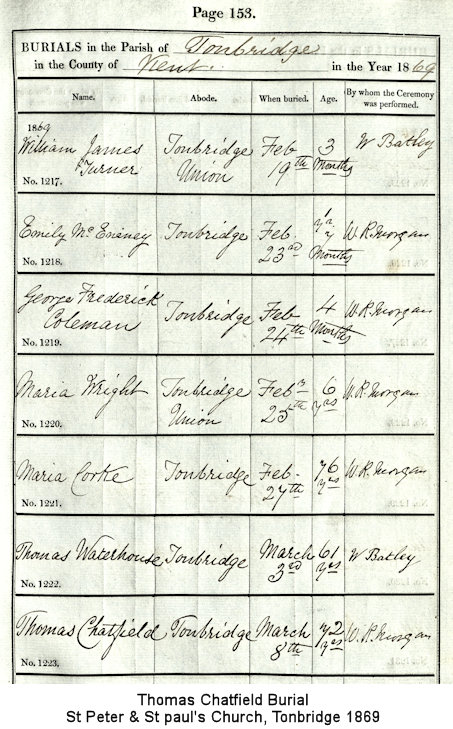 Page 153.
BURIALS in the Parish of Tonbridge
in the County of Kent. in the Year 1869
Name. Abode. When buried. Age. By whom the Ceremony was performed.
1869
William James Turner Tonbridge Union Feb 19th 3 Months W Batley
No. 1217.
Emily Mc Tonbridge Feb. 23rd Months W.R. Morgan
No. 1218.
George Frederick Coleman Tonbridge Feb 24th 4 Months W.R. Morgan
No. 1219.
Maria Wright Tonbridge Union Feb 25th 6 yrs W.R. Morgan
No. 1220.
Maria Corke Tonbridge Feb. 27th 76 yrs W.R. Morgan
No. 1221.
Thomas Waterhouse Tonbridge March 3rd 61 yrs W Batley
No. 1222.
Thomas Chatfield Tonbridge March 8th 72 yrs W.R. Morgan
No. 1223.
Thomas Chatfield Burial
St Peter & St paul's Church, Tonbridge 1869